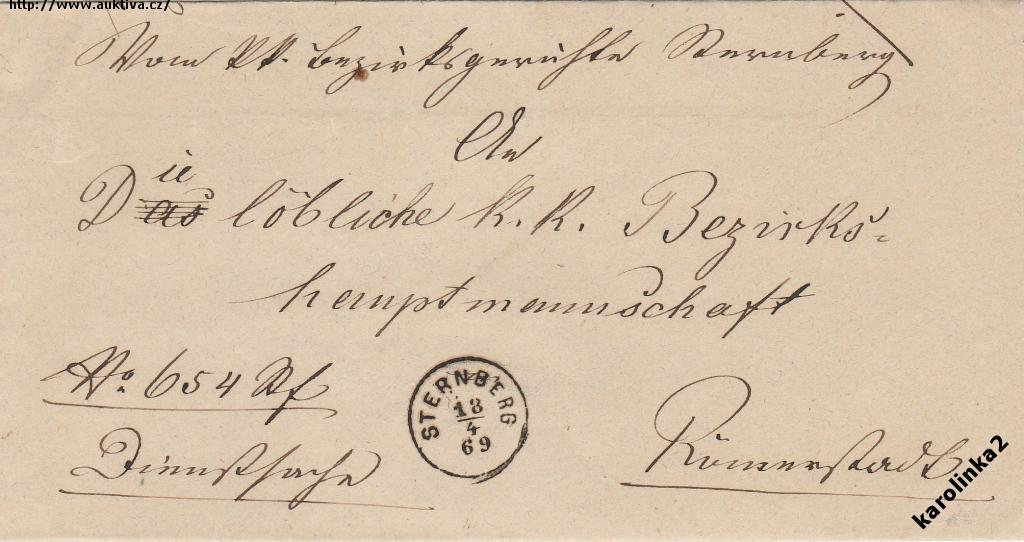 http://www.auktiva.cz/
Vom k.k. Bezirksgerichte Sternberg
An
Die
löbliche k. k. Bezirks=
hauptmannschaft
No. 654
Dienstsache
STERNBERG
18/4
69
Römerstadt
karolinka2